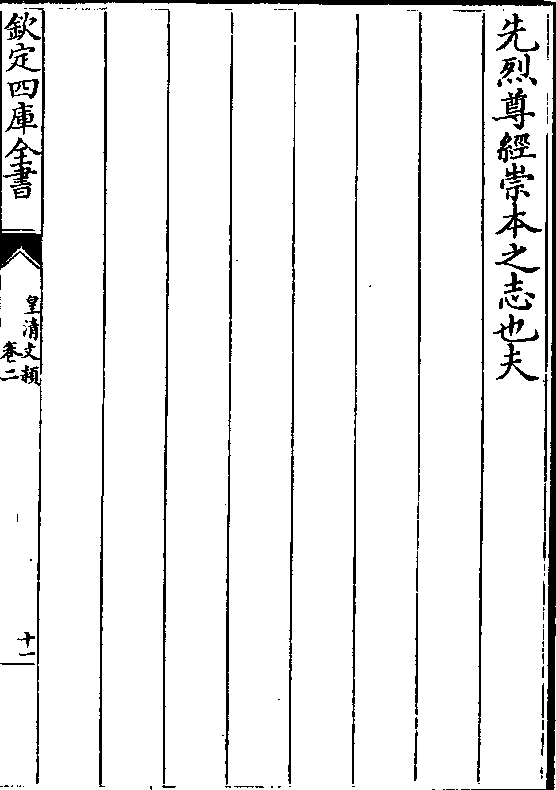 先烈尊經崇本之志也夫
欽定四庫全書
皇清文穎
卷二
十一